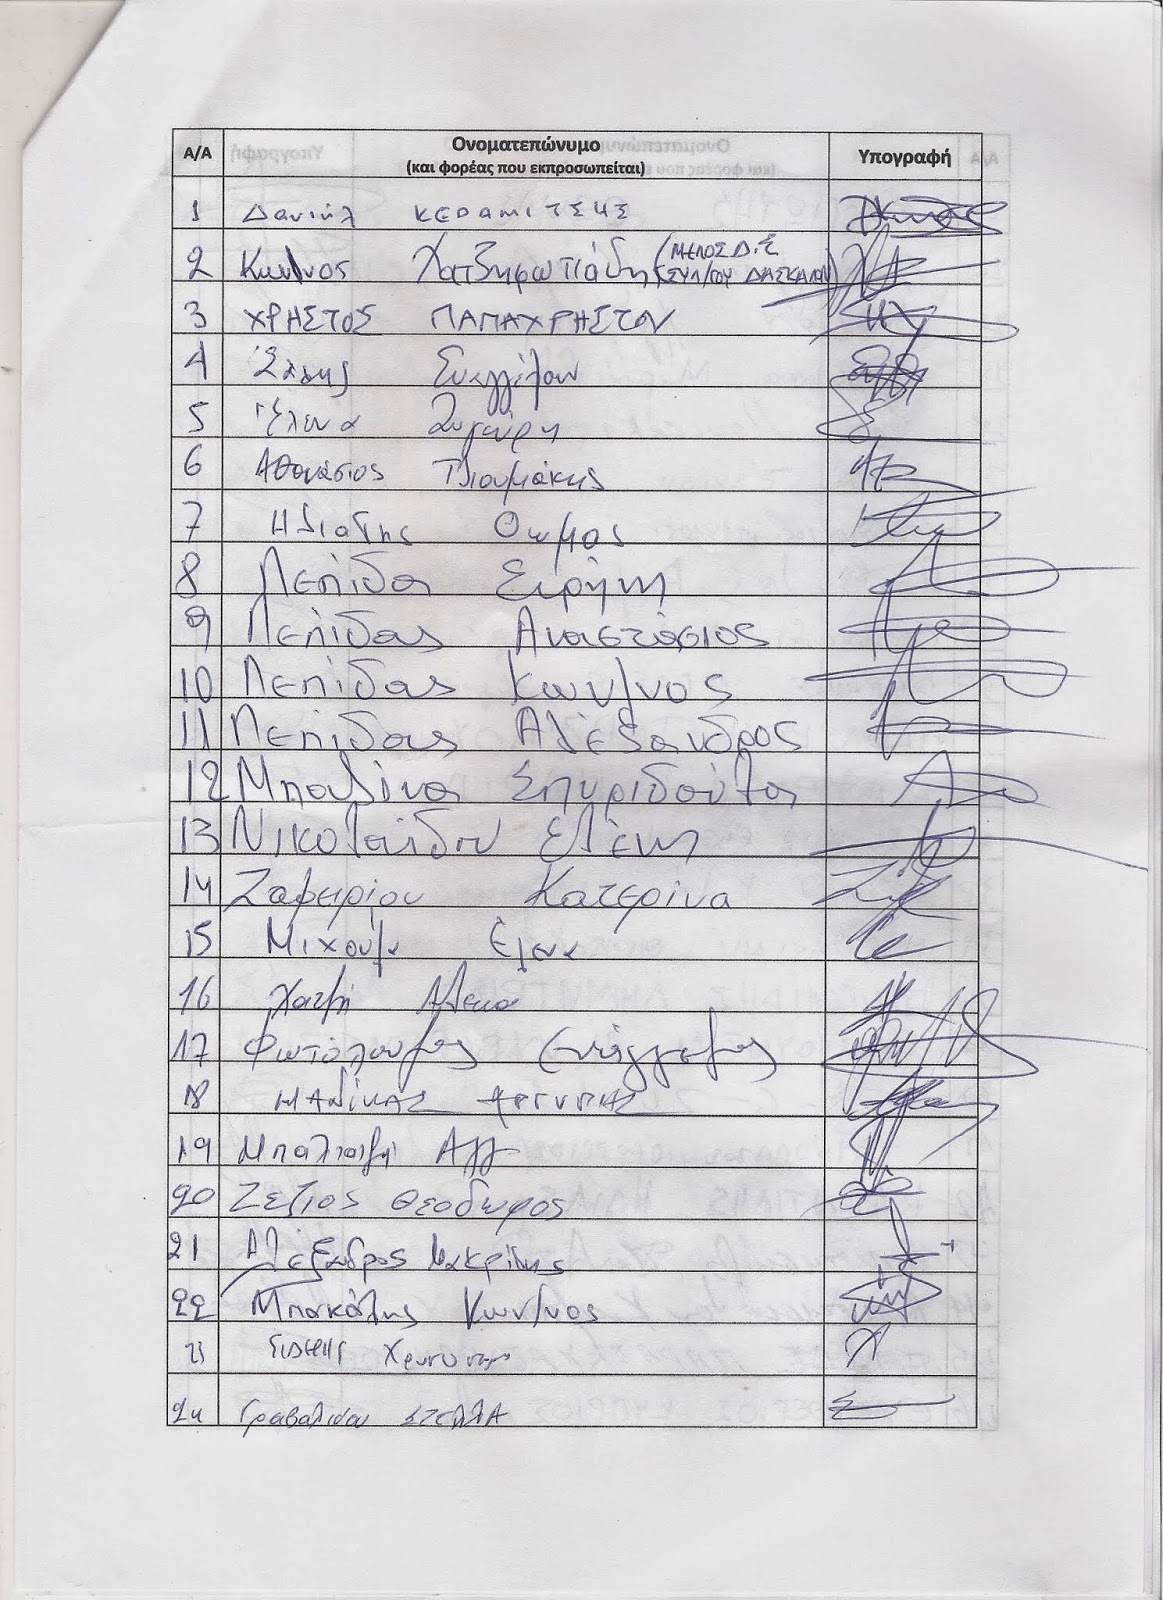 Α/Α Ονοματεπώνυμο Υπογραφή
(και φορέας που εκπροσωπείται)
1 Δανιήλ ΚΕΡΑΜΙΤΣΗΣ
2 Κων/νος Χατζηφωτιάδης (ΜΕΛΟΣ Δ.Σ
ΣΥΛ/ΓΟΥ ΔΑΣΚΑΛΩΝ)
3 ΧΡΗΣΤΟΣ ΠΑΠΑΧΡΗΣΤΟΥ
4 Ευαγγέλου
5 Έλενα Ζυγούρη
6 Αθανάσιος Τσιουμάκης
7 Ηλιαδης Θωμας
8 Λεπίδα Ειρήνη
9 Λεπίδας Αναστάσιος
10 Λεπίδας Κων/νος
11 Λεπίδας Αλέξανδρος
12 Σπυριδούλα
13 Νικολαϊδου Ελένη
14 Ζαφειρίου Κατερίνα
15 Μιχούλα Έλενα
16 Χατζή
17
18 ΜΑΝΙΚΑΣ ΑΡΓΥΡΗΣ
19 Αγγ
20 Ζέζιος Θεόδωρος
21 Αλέξανδρος Μακρίδης
22 Μπακάλης Κων/νος
23
24 Γραβαλίδου ΣΤΕΛΛΑ